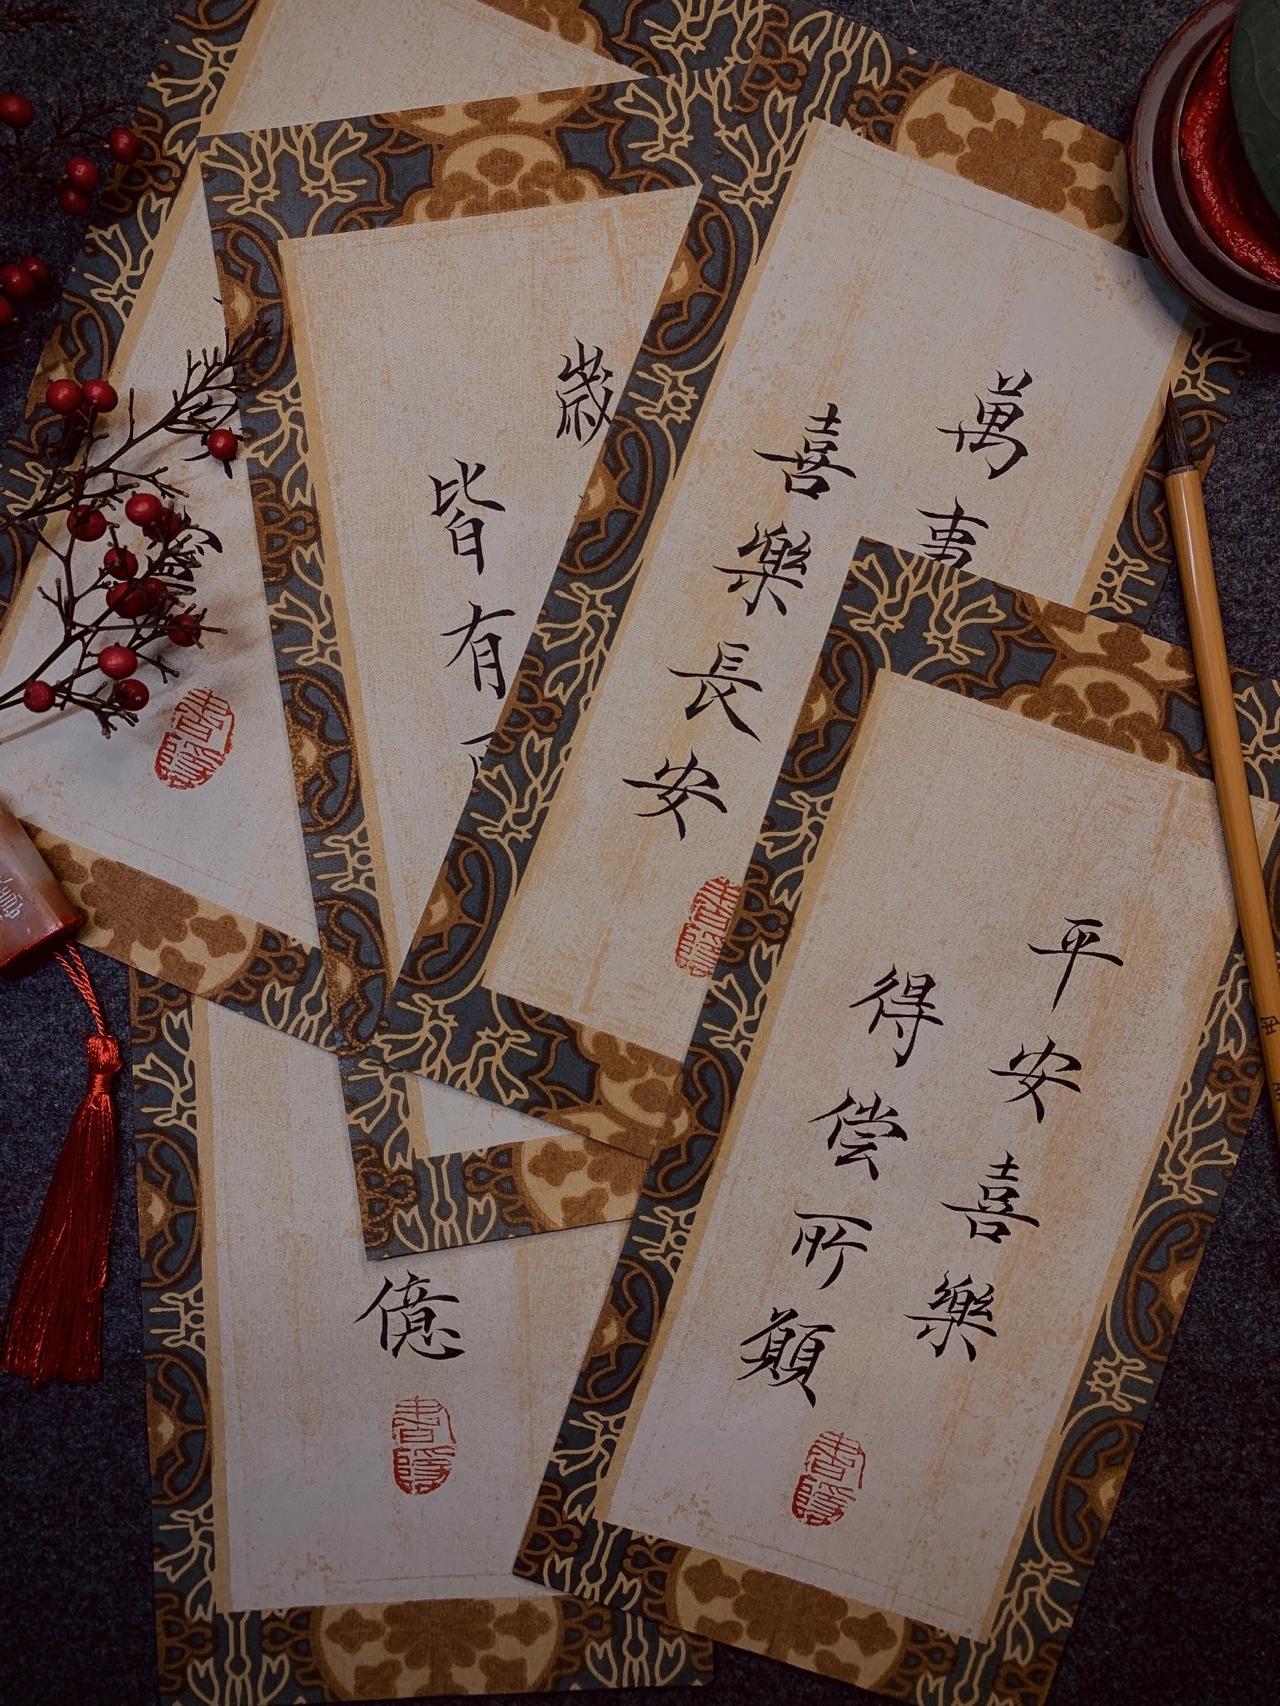 平安喜樂
得偿所願
萬事
喜樂長安
歲
皆有
億